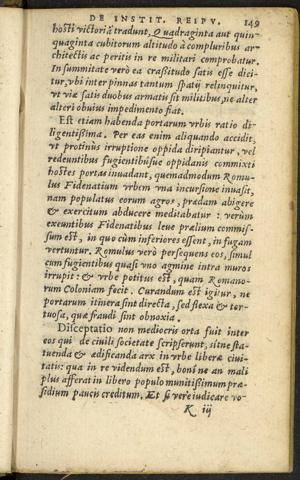 DE INSTIT. REIPV. 149
hosti victoriã tradunt. Quadraginta aut quin-
quaginta cubitorum altitudo à compluribus ar-
chitectis ac peritis in re militari comprobatur.
In summitate verò ea craßitudo satis esse dici-
tur, vbi inter pinnas tantum spatij relinquitur,
vt viæ satis duobus armatis sit militibus, ne alter
alteri obuius impedimento fiat.
Est etiam habenda portarum vrbis ratio di-
ligentißima. Per eas enim aliquando accidit,
vt protinus irruptione oppida diripiantur, vel
redeuntibus fugientibúsue oppidanis commixti
hostes portas inuadant, quemadmodum Romu-
lus Fidenatium vrbem vna incursione inuasit,
nam populatus eorum agros, prædam abigere
& exercitum abducere meditabatur : verùm
exeuntibus Fidenatibus leue prælium commis-
sum est, in quo cùm inferiores essent, in fugam
vertuntur. Romulus verò persequens eos, simul
cum fugientibus quasi vno agmine intra muros
irrupit: & vrbe potitus est, quam Romano-
rum Coloniam fecit. Curandum est igitur, ne
portarum itinera sint directa, sed flexa & tor-
tuosa, quæ fraudi sint obnoxia.
Disceptatio non mediocris orta fuit inter
eos qui de ciuili societate scripserunt, sitne sta-
tuenda & ædificanda arx in vrbe liberæ ciui-
tatis: qua in re videndum est, boni ne an mali
plus afferat in libero populo munitißimum præ-
sidium paucis creditum. Et si vere iudicare vo-
K iij